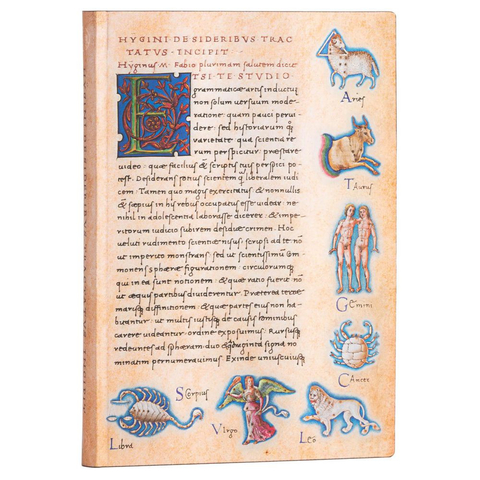 HYGINI·DE SIDERIBVS TRAC
TATVS·INCIPIT·
Hyginus·M·Fabio plurimam salutem dicit
ETSI·TE STVDIO
grammaticæ artis inductũ
non solum uersuum mode-
ratione: quam pauci perui-
dere: sed historiarum q̃
uarietate: qua scientia re
rum perspicitur: præstare
uideo: quæ facilius & scriptis tuis perspici po-
test. Desiderans potius scientem q̃ liberalem iudi-
cem: Tamen quo magis exercitatus: & nonnullis
& sæpius in his rebus occupatus esse uidear: ne
nihil in adolescentia laborasse dicerer: & impe-
ritorum iudicio subirem desidiæ crimen. Hoc
uelut rudimento scientiæ nisus: scripsi ad te: nõ
ut imperito monstrans: sed ut scientissimũ com
monens: sphæræ figurationem: circulorumq̃
qui in ea sunt notionem: & quæ ratio fuerit nõ
ut æquis partibus diuiderentur. Præterea terræ
marisq̃ diffinitionem: & quæ partes eius non ha-
bitantur: ut multis iustisq̃ de causis hominibus
carere uideantur: ordine exposuimus. Rursusq̃
redeuntes ad sphæram: duo & quadraginta signa no
minatim pernumerauimus. Exinde uniuscuiusq̃
Aries
Taurus
Gemini
Cancer
Scorpius
Libra
Virgo
Leo